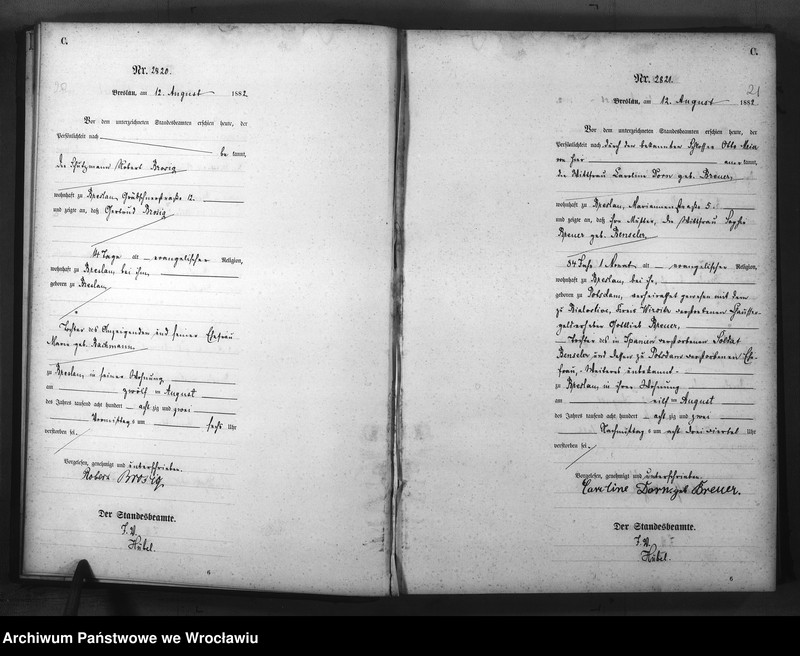 C.
Nr. 2820.
Breslau, am 12. August 1882
Vor dem unterzeichneten Standesbeamten erschien heute, der
Persönlichkeit nach
be kannt,
der Schutzmann Robert Brosig
wohnhaft zu Breslau, Gräbschnerstraße 12.
und zeigte an, daß Gertrud Brosig
14 Tage alt evangelischer Religion,
wohnhaft zu Breslau bei ihm,
geboren zu Breslau
Tochter des Anzeigenden und seiner Ehefrau
Marie geb. Bachmann
zu Breslau, in seiner Wohnung
am zwölften August
des Jahres tausend acht hundert acht zig und zwei
Vormittags um sechs Uhr
verstorben sei.
Vorgelesen, genehmigt und unterschrieben.
Robert Brosig
Der Standesbeamte.
J. V.
Hübel.
6
C.
21
Nr. 2821.
Breslau, am 12. August 1882
Vor dem unterzeichneten Standesbeamten erschien heute, der
Persönlichkeit nach durch den bekannten Schlosser Otto
von hier aner kannt,
die Wittfrau Caroline Dorn geb. Breuer,
wohnhaft zu Breslau, Mariannenstraße 5.
und zeigte an, daß ihre Mutter, die Wittfrau Sophie
Breuer geb. Benseler,
84 Jahr 1 Monat alt evangelischer Religion,
wohnhaft zu Breslau bei ihr,
geboren zu Potsdam, verheirathet gewesen mit dem
zu Kreis verstorbenen
Gottlieb Breuer,
Tochter des in Spanien verstorbenen Soldat
Benseler und dessen zu Potsdam verstorbenen Ehe-
frau, Weiteres unbekannt
zu Breslau, in ihrer Wohnung
am elften August
des Jahres tausend acht hundert acht zig und zwei
Nachmittags um acht drei viertel Uhr
verstorben sei.
Vorgelesen, genehmigt und unterschrieben.
Caroline Dorn geb Breuer.
Der Standesbeamte.
J. V.
Hübel.
6
Archiwum Państwowe we Wrocławiu